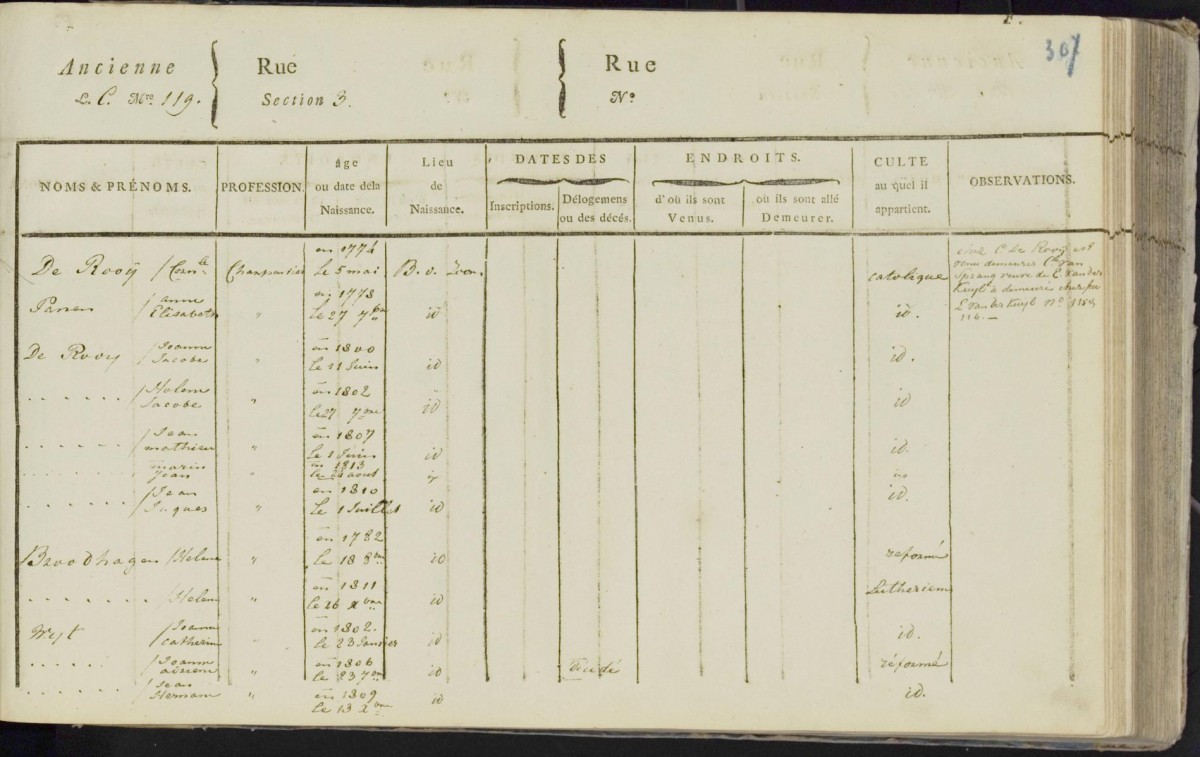 307
Ancienne Rue Rue
L. C. Nro. 119. Section 3. No
NOMS & PRÉNOMS. PROFESSION. âge ou date dela Naissance. Lieu de Naissance. DATES DES Inscriptions. Délogemens ou des décés. ENDROITS. d'où ils sont Venus. où ils sont allé Demeurer. CULTE au quel il appartient. OBSERVATIONS.
en 1774
De Rooÿ / Charpentier le 5 mai B. o. Zoom catolique
en 1773
Panen / anne Elisabeth " le 27 7bre id id.
De Rooy / Joanne Jacobe " en 1800 le 11 Juin id id.
....... / Helene Jacobe " en 1802 le 27 7bre id id
....... / Jean mathieu " en 1807 le 1 Juin id id.
....... marin Jean " en 1813 août
....... / Jean Jaques " en 1810 le 1 Juillet id id.
en 1782
Broodhagen / Helene " le 18 8bre id reformé
....... / Helene " en 1811 le 26 Xbre id Lutherien
Weyt / Joanne catherine " en 1802. le 23 Janvier id id.
...... / Joanne " en 1806 le 23 7bre id réformé
....... / Jean Hermane " en 1809 le 13 Xbre id id.
C. De Rooÿ est
venu demeurer
Sprang veuve de C. van der
Kuyl a demeuré
L van der Kuyl No. 115
116. —